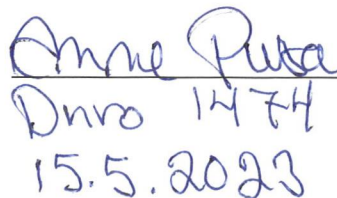 Anne Putta
Dnro 1474
15.5.2023